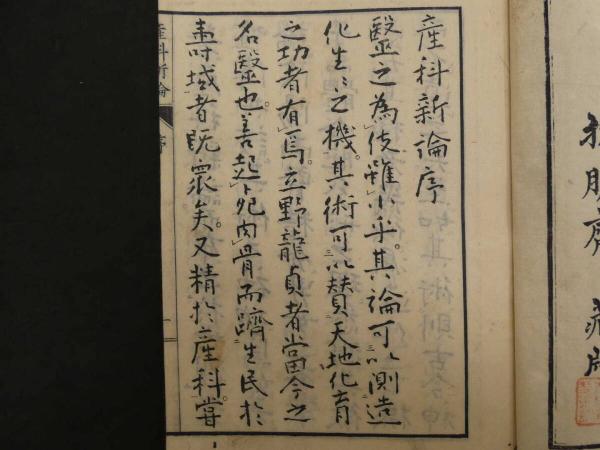 産科新論序
醫之為伎雖小乎其論可以測造
化生々之機其術可以賛天地化育
之功者有焉立野龍貞者當今之
名醫也善起死肉骨而躋生民於
壽域者既衆矣又精於産科嘗
産科新論
序
一